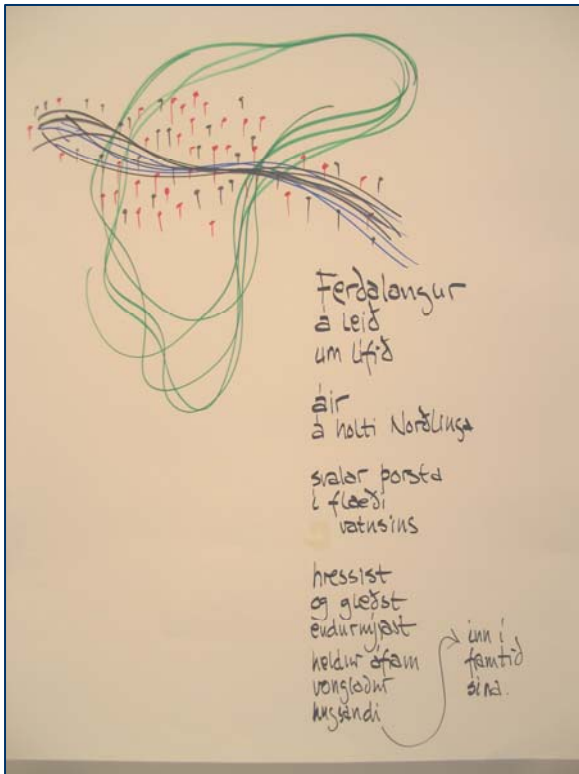 Ferðalangur
á leið
um lífið
áir
á holti Norðlinga
svalar þorsta
í flæði
vatnsins
hressist
og gleðst
endurnýjast
heldur áfam
vonglaður
hugsandi
inn í
famtíð
sína.